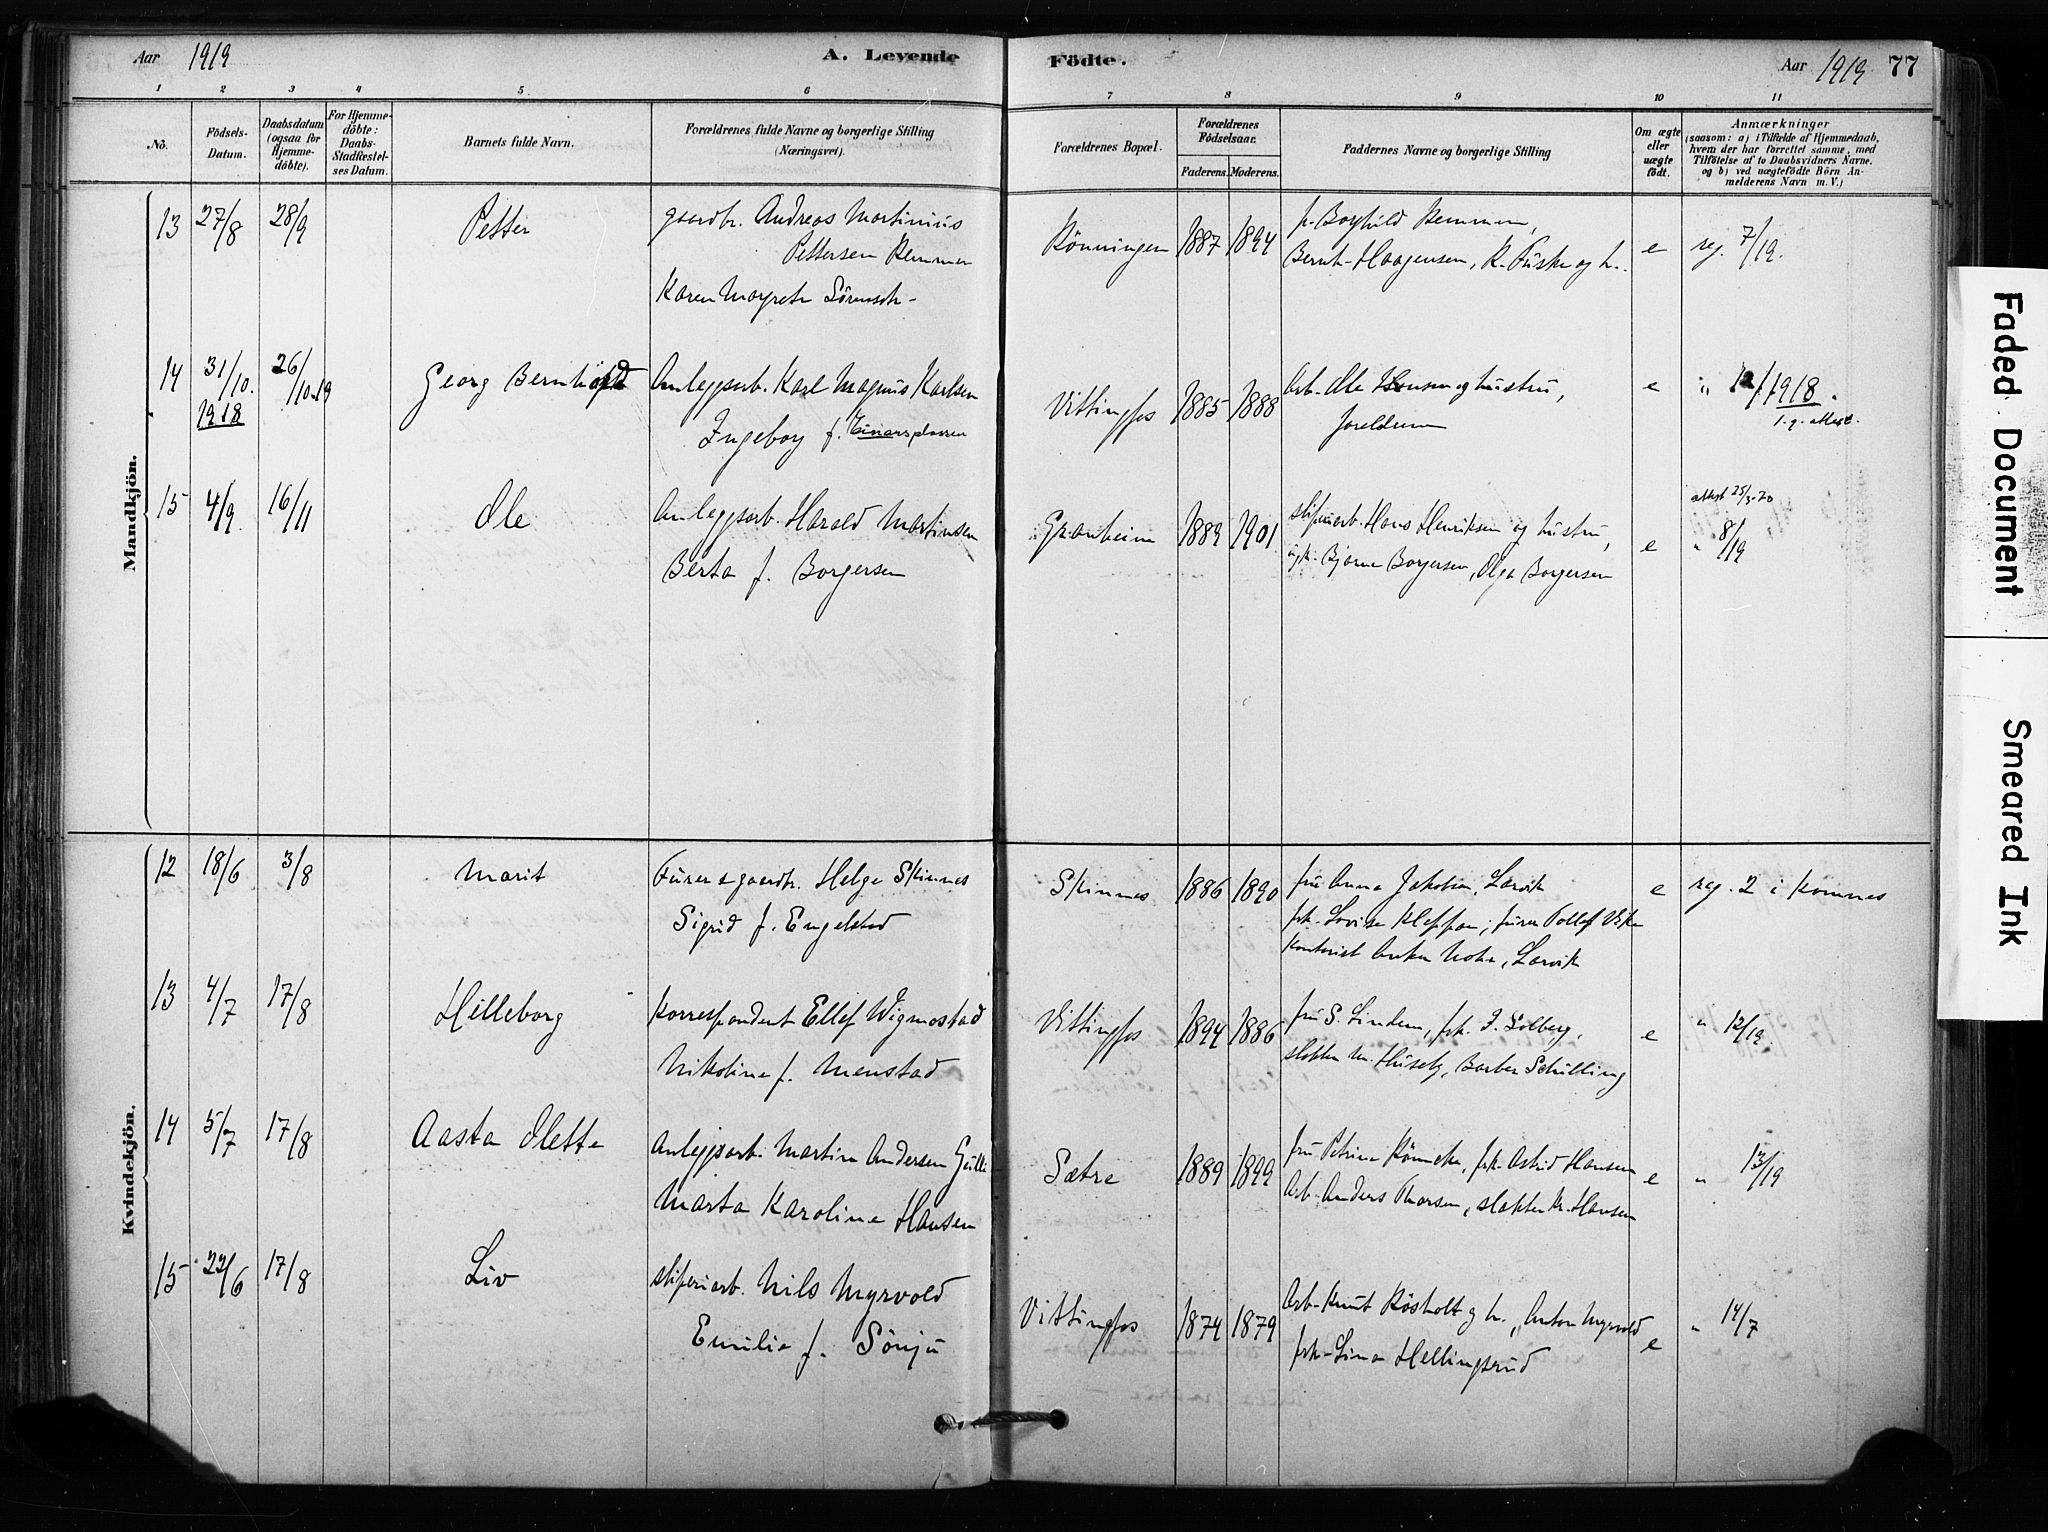 Aar 1919
A. Levende
Födte.
Aar 1919 77
1 2 3 4 5 6 7 8 9 10 11
No.
Födsels-
Datum.
Daabsdatum
(ogsaa for
Hjemme-
döbte).
For Hjemme-
döbte:
Daabs-
Stadfæstel-
ses Datum.
Barnets fulde Navn.
Forældrenes fulde Navne og borgerlige Stilling
(Næringsvei).
Forældrenes Bopæl.
Forældrenes
Födselsaar.
Faderens. Moderens.
Faddernes Navne og borgerlige Stilling
Om ægte
eller
uægte
födt.
Anmærkninger
(saasom: a) i Tilfælde af Hjemmedaab,
hvem der har forrettet samme, med
Tilföielse af to Daabsvidners Navne.
og b) ved uægtefödte Börn An-
melderens Navn m. V.)
Mandkjön.
13 27/8 28/9 Petter
gaardbr. Andreas Martinius
Pettersen Remmen
Karen Margrete Sörensdtr-
Rönningen 1887 1894
fr. Borghild Remmen,
Bernt Haagensen, K. Fuske og h..
e reg. 7/19.
14 31/10. 1918 26/10-19
Georg Bernhard
Anleggsarb. Karl Magnus Karlsen
Ingeborg f. Einarsplassen
Vittingfos 1885 1888
Arb. Ole Hansen og hustru,
foreldrene
e " /1918.
15 4/9. 16/11 Ole
Anleggsarb. Harald Martinsen
Berta f. Borgersen
Granheim 1889 1901
sliperiarb. Hans Henriksen og hustru,
Bjarne Borgersen, Olga Borgersen
e attest 25/3-70
" 8/19
Kvindekjön.
12 18/6 3/8 Marit
Furer & gaardbr. Helge Skinnes
Sigrid f. Engelstad
Skinnes 1886 1890
fru Anna Jakobsen, Larvik
frk. Lovise Kleppan; furer Tollef Vike
Kontorist Anker Hohn, Larvik
e reg. 2 i Komnes
13 4/7 17/8 Hilleborg
Korrespondent Ellef Wigmostad
Nikoline f. Menstad
Vittingfos 1894 1886
fru S. Linden, frk. I. Solberg,
slakter M. Huseby, Barber Schilling
e " 12/19.
14 5/7 17/8 Aasta Olette
Anleggsarb. Martin Andersen Gulli
Marta Karoline Hansen
Sætre 1889 1899
fru Petrine Rönneke, frk. Astrid Hansen
Arb. Anders Thorsen, slakter Kr. Hansen
e " 13/19
15 22/6 17/8 Liv
sliperiarb. Nils Myrvold
Emilie f. Sönju
Vittingfos 1874 1879
Arb. Knut Rösholt og h., Anton Myrvold
frk. Lina Hellingsrud
e " 14/7
Faded Document
Smeared Ink